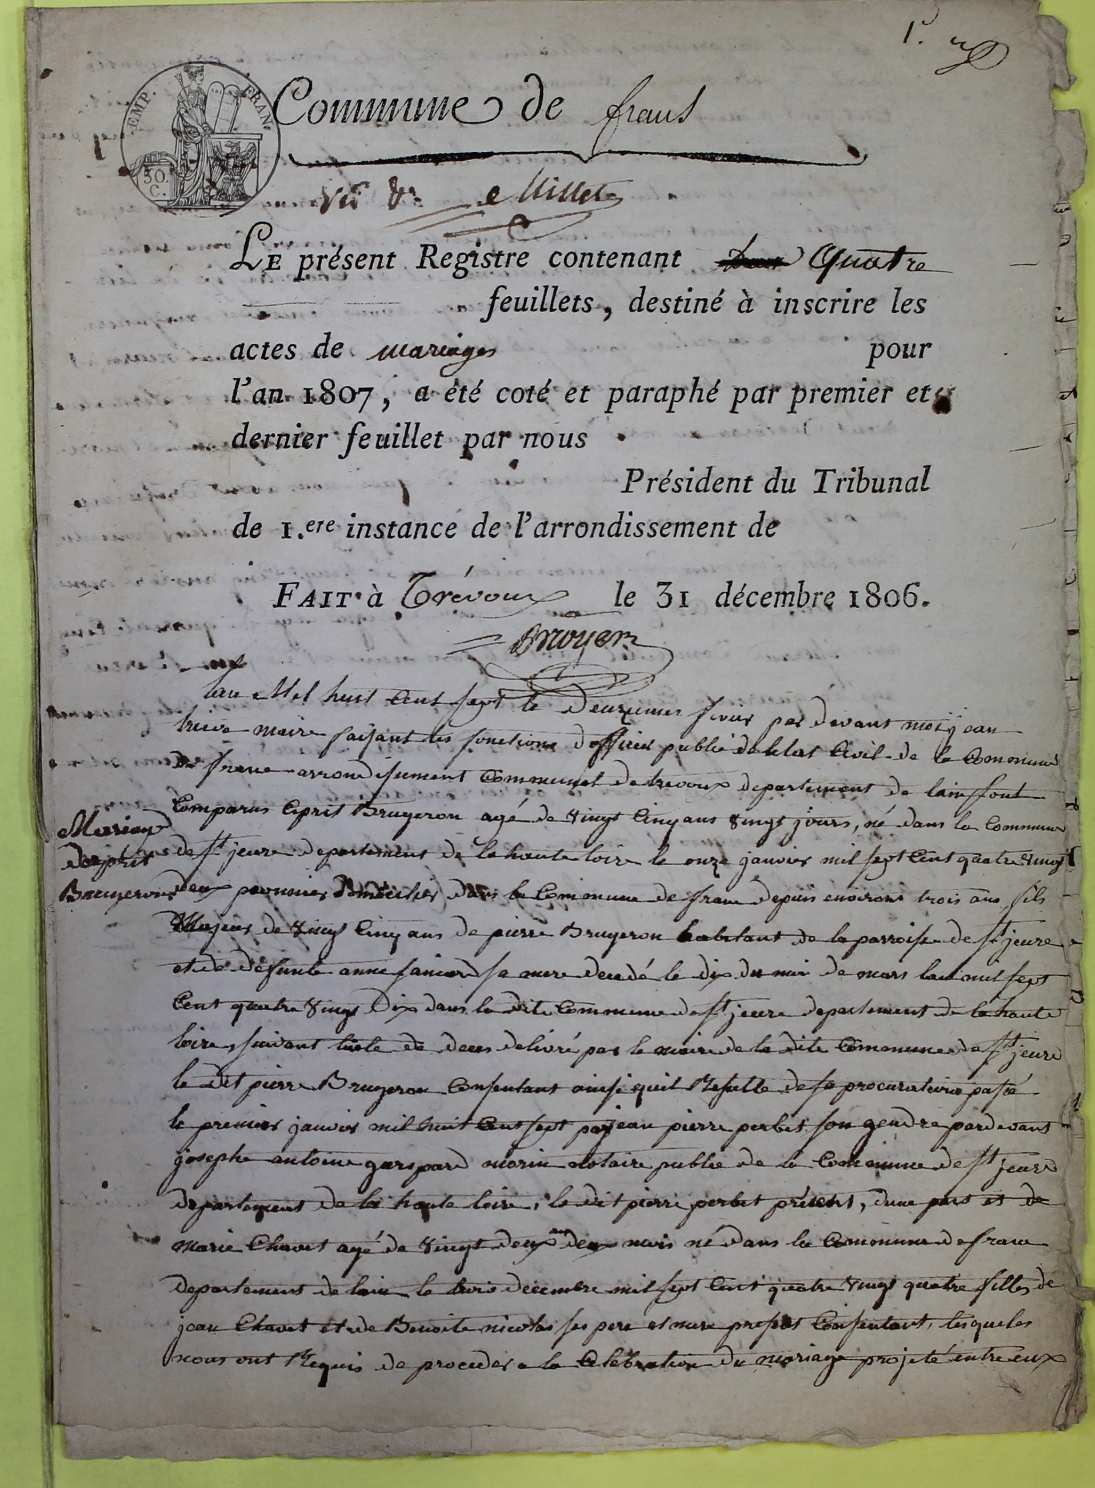 1.r
EMP. FRAN.
50 C.
Commune de frans
Millet
LE présent Registre contenant Quatre
feuillets, destiné à inscrire les
actes de mariages pour
l'an 1807, a été coté et paraphé par premier et
dernier feuillet par nous
Président du Tribunal
de 1.ere instance de l'arrondissement de
FAIT à Trévoux le 31 décembre 1806.
lan Mil huit Cent sept le Deuxieme par devant moy jean
maire faisant les fonctions dofficier publié de letat Civil de la Commune
de frans arrondisement Communal de trevoux departement de lain sont
Comparus Cipris Brugeron agé de vingt Cinq ans vingt jours, né dans la Commune
Mariage
de st jeure departement de la haute loire le onze janvier mil sept Cent quatre vingt
de Cipris
Brugeron
deux domicilié dans la Commune de frans depuis environ trois ans fils
Majeur de vingt Cinq ans de pierre Brugeron habitant de la parroisse de st jeure
et de defunte anne sa mere decedé le dix du moi de mars lan mil sept
Cent quatre vingt Dix dans la dite Commune de st jeure departement de la haute
loire, suivant lacte de deces delivré par le maire de la dite Commune de st jeure
le dit pierre Brugeron Consentant ainsi quil Resulte de sa procuration pasé
le premier janvier mil huit Cent sept par jean pierre perbet son gendre pardevant
josephe antoine gaspard morin notaire publié de la Commune de st jeure
departement de la haute loire, le dit pierre perbet présent, dune part et de
marie Chavet agé de vingt deux ans deux mois né dans la Commune de frans
departement de lain le trois decembre mil sept Cent quatre vingt quatre filles de
jean Chavet et de Benoite nicolas ses pere et mere present Consentant, lesqueles
nous ont Requis de proceder a la Celebration du mariage projeté entre eux